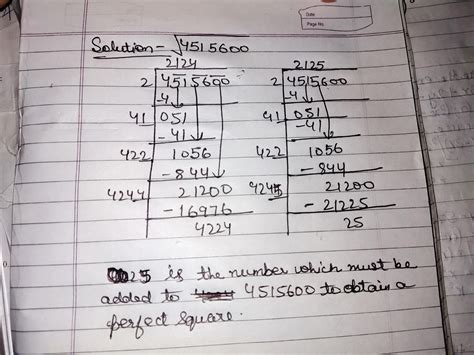 Date
Page No.
Solution - √4515600
2124
2 4515600
-4
41 051
-41
422 1056
-844
4244 21200
-16976
4224
2125
2 4515600
-4
41 051
-41
422 1056
-844
4245 21200
-21225
25
25 is the number which must be
added to 4515600 to obtain a
perfect square.